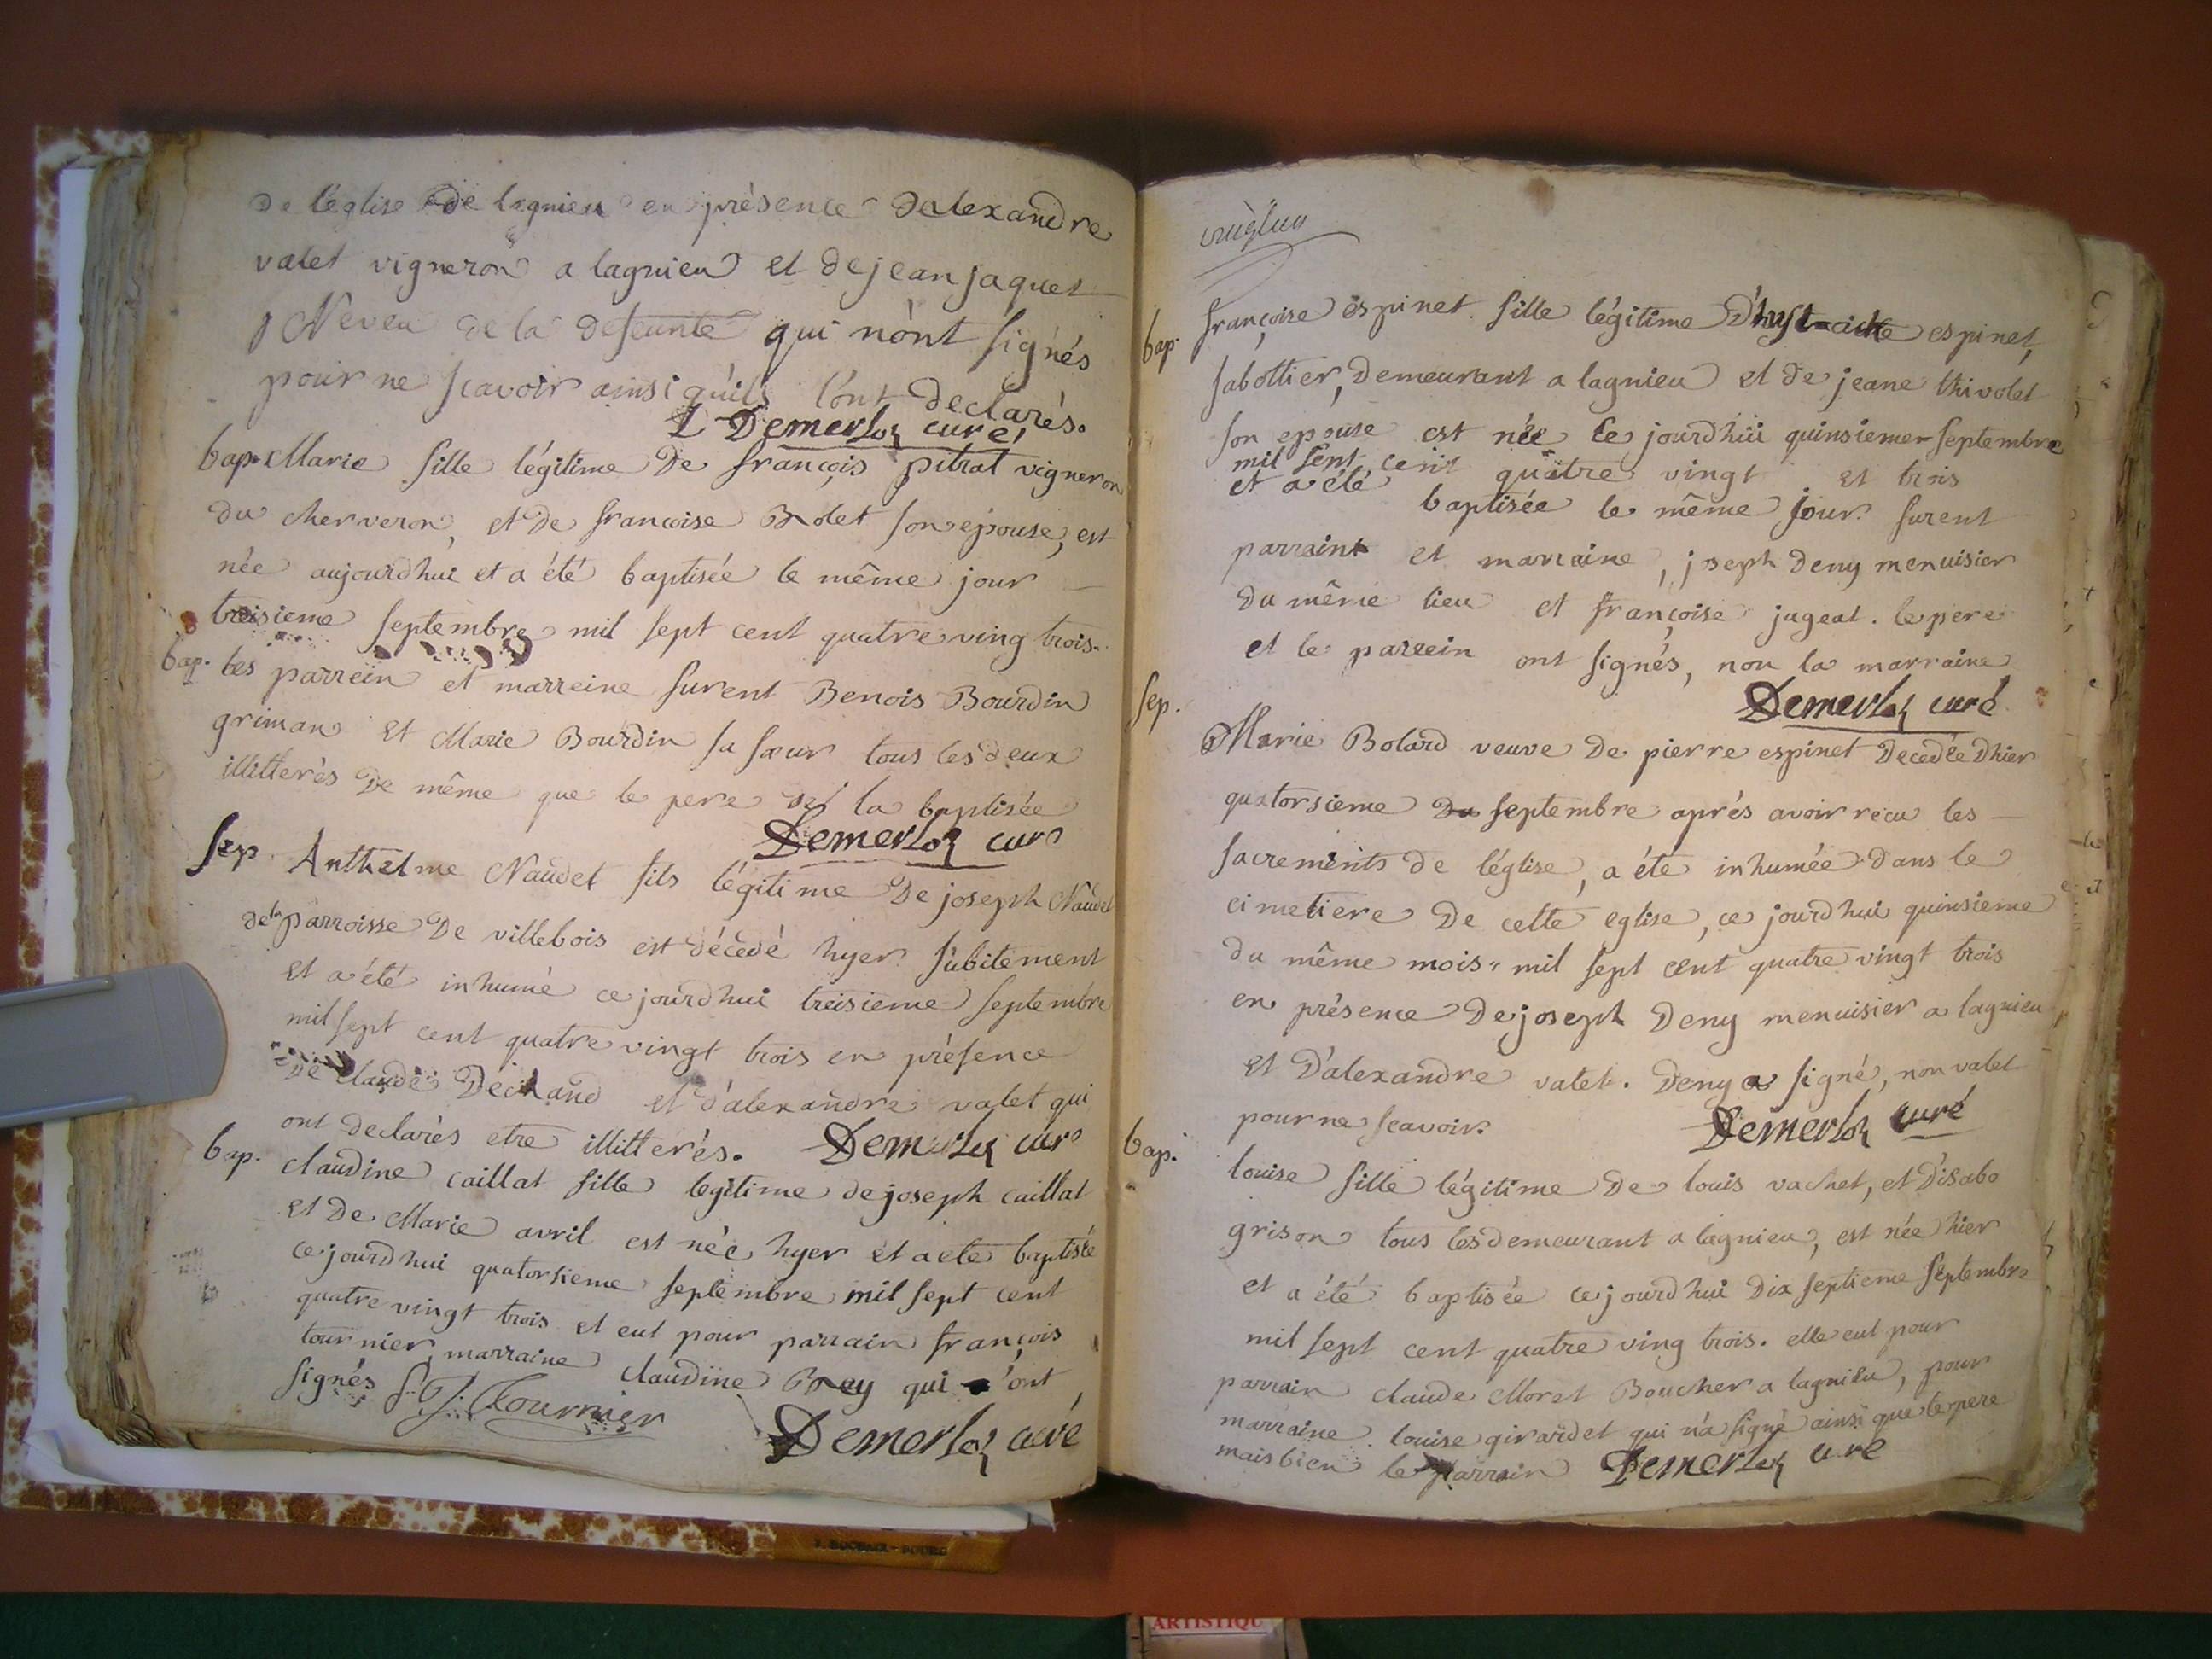 de léglise de lagnieu en présence dalexandre
valet vigneron a lagnieu et de jean jaquet
Neveu de la defeunte qui nónt signés
pour ne scavoir ainsi quils lónt declarés.
Demerloz curé
bap. Marie fille légitime de françois pitrat vigneron
du cherveron, et de francoise Bolet son épouse, est
née aujourdhui et a été baptisée le même jour
treisieme septembre mil sept cent quatre ving trois.
bap. les parrein et marreine furent Benois Bourdin
griman et Marie Bourdin sa sœur tous les deux
illitterés de même que le pere de la baptisée
Demerloz curé
sep. Anthelme Naudet fils légitime de joseph Naudet
de la parroisse de villebois est décedé hyer subitement
et a été inhumé ce jourdhui treisieme septembre
mil sept cent quatre vingt trois en présence
de claude et dálexandre valet qui
ont declarés etre illitterés. Demerloz curé
bap. claudine caillat fille legitime de joseph caillat
et de Marie avril est née hyer et a eté baptisée
ce jourdhui quatorsieme septembre mil sept cent
quatre vingt trois et eut pour parrain françois
tournier, marraine claudine Brey qui ónt
signés f. Tournier
Demerloz curé
bap. françoise espinet fille légitime espinet,
sabottier, demeurant a lagnieu et de jeane thivolet
son epouse est née ce jourdhüi quinsieme septembre
mil sept cent quatre vingt et trois
et a été baptisée le même jour. furent
parraint et marraine, joseph deny menuisier
du même lieu et françoise jageat. le pere
et le parrein ont signés, non la marraine
Demerloz curé
sep.
Marie Bolard veuve de pierre espinet decedée dhier
quatorsieme septembre aprés avoir recu les
sacreménts de léglise, a éte inhumée dans le
cimetiere de cette eglise, ce jourdhui quinsieme
du même mois mil sept cent quatre vingt trois
en présence de joseph deny menuisier a lagnieu
et dálexandre valet. deny a signé, non valet
pour ne scavoir. Demerloz curé
bap. louise fille légitime de louis vachet, et dísabo
grison tous les demeurant a lagnieu, est née hier
et a été baptisée ce jourdhui dix septieme septembre
mil sept cent quatre ving trois. elle eut pour
parrain claude Morel Boucher a lagnieu, pour
marraine louise girardet qui ná signé ainsi que le pere
mais bien le parrain Demerloz curé
ARTISTIQU